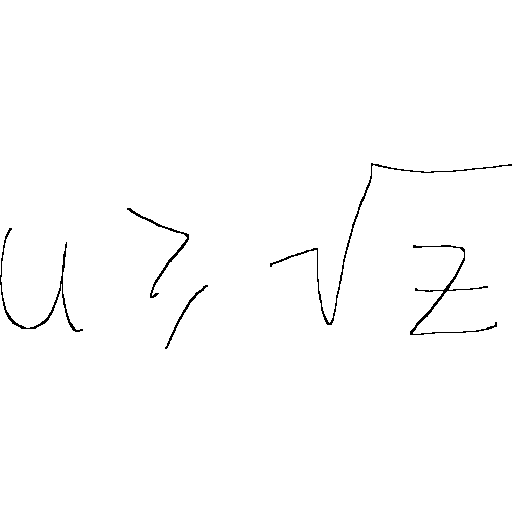 u ≥ √z